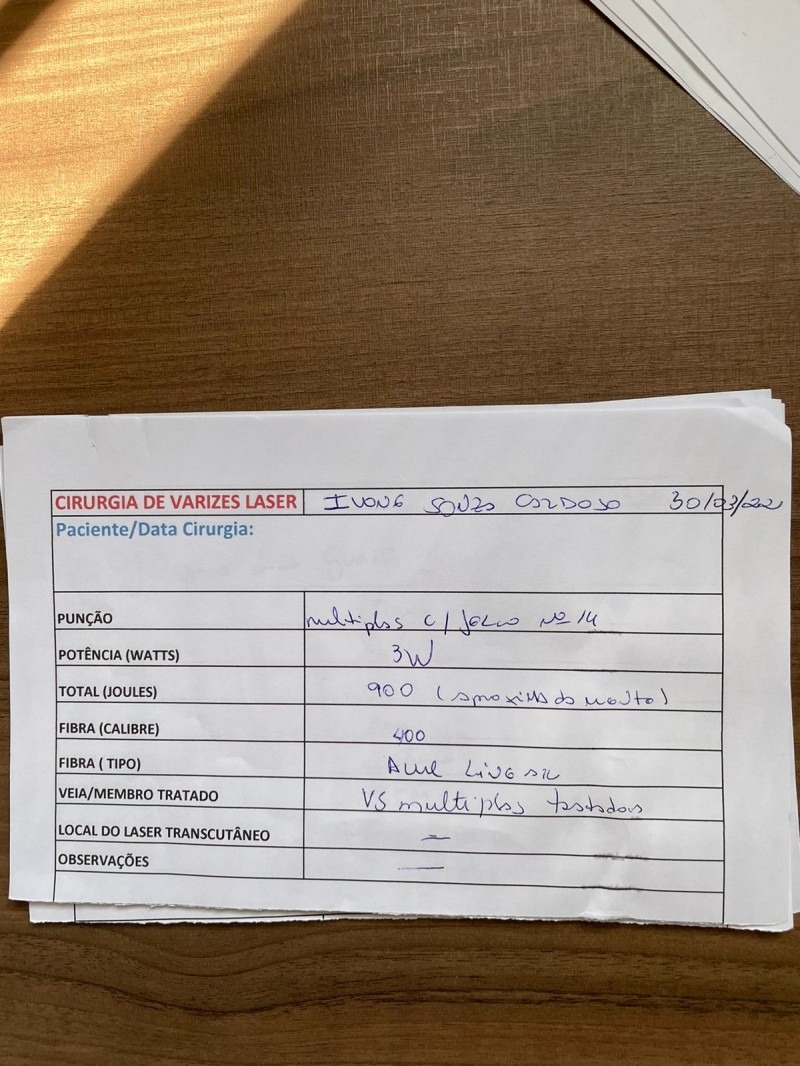 CIRURGIA DE VARIZES LASER IVONE SOUZA CARDOSO 30/03/2021
Paciente/Data Cirurgia:
PUNÇÃO multiplas c/ Jelco nº 14
POTÊNCIA (WATTS) 3W
TOTAL (JOULES) 900 (aproximadamente)
FIBRA (CALIBRE) 400
FIBRA ( TIPO) LINEAR
VEIA/MEMBRO TRATADO VS multiplas
LOCAL DO LASER TRANSCUTÂNEO –
OBSERVAÇÕES —